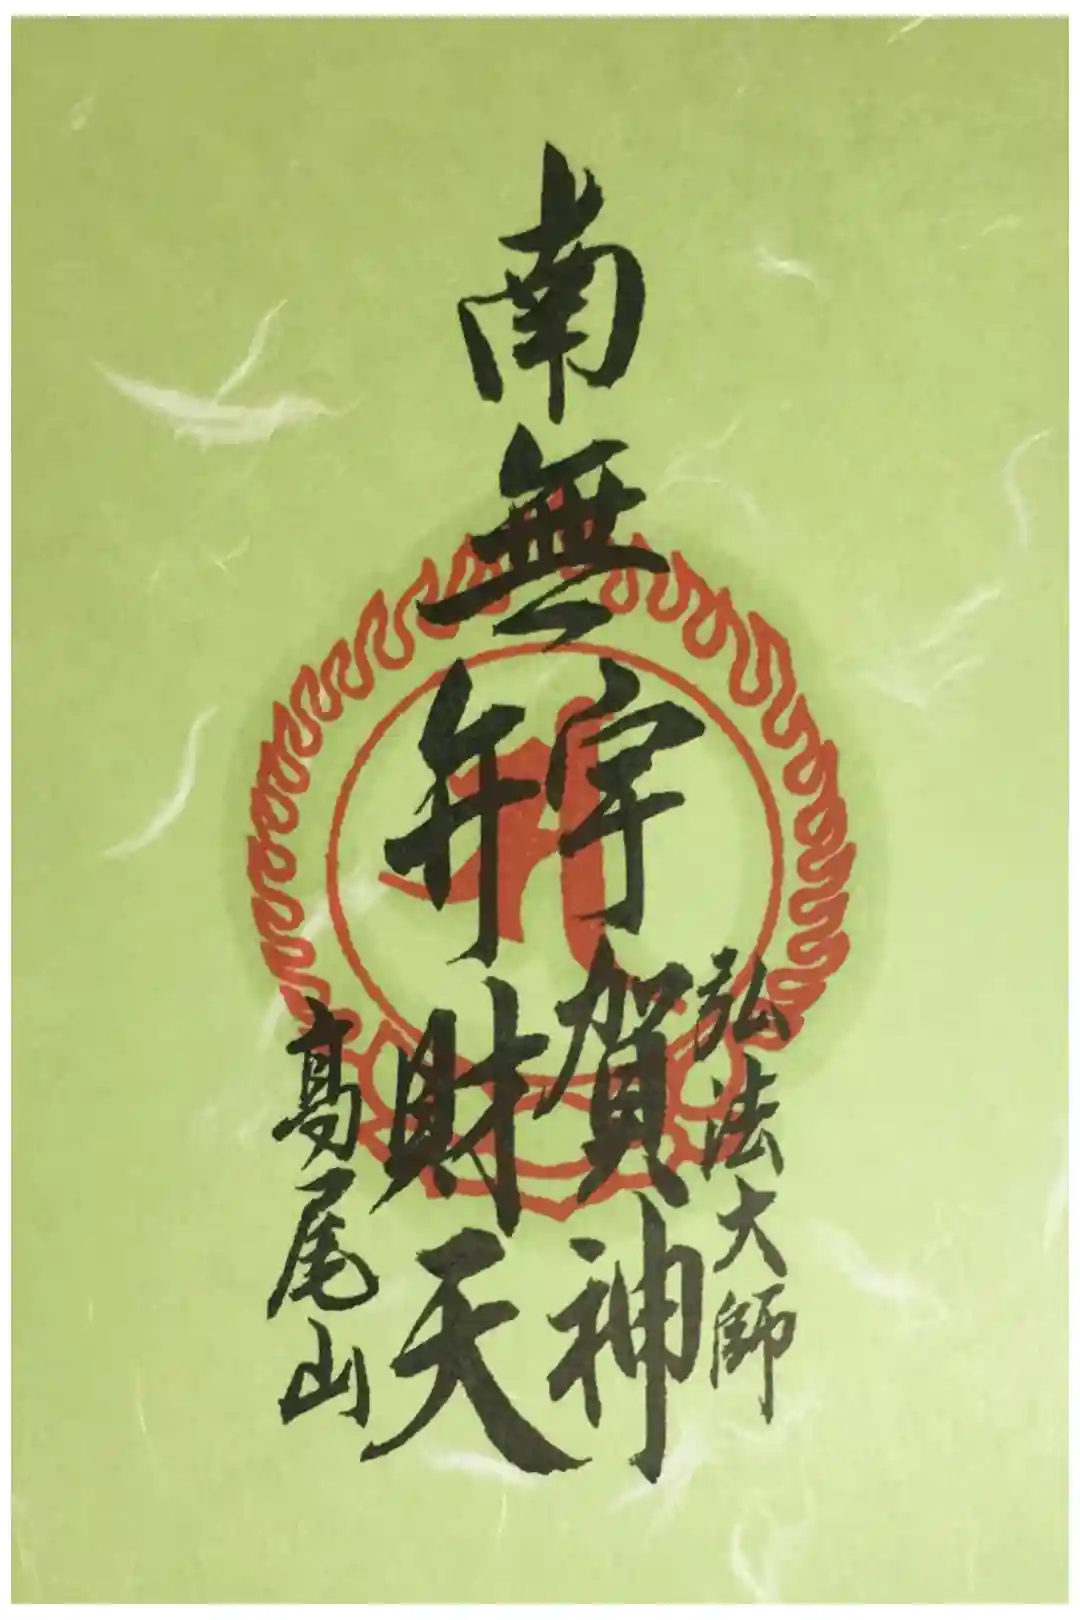 南無
弘法大師
宇賀神
弁財天
髙尾山